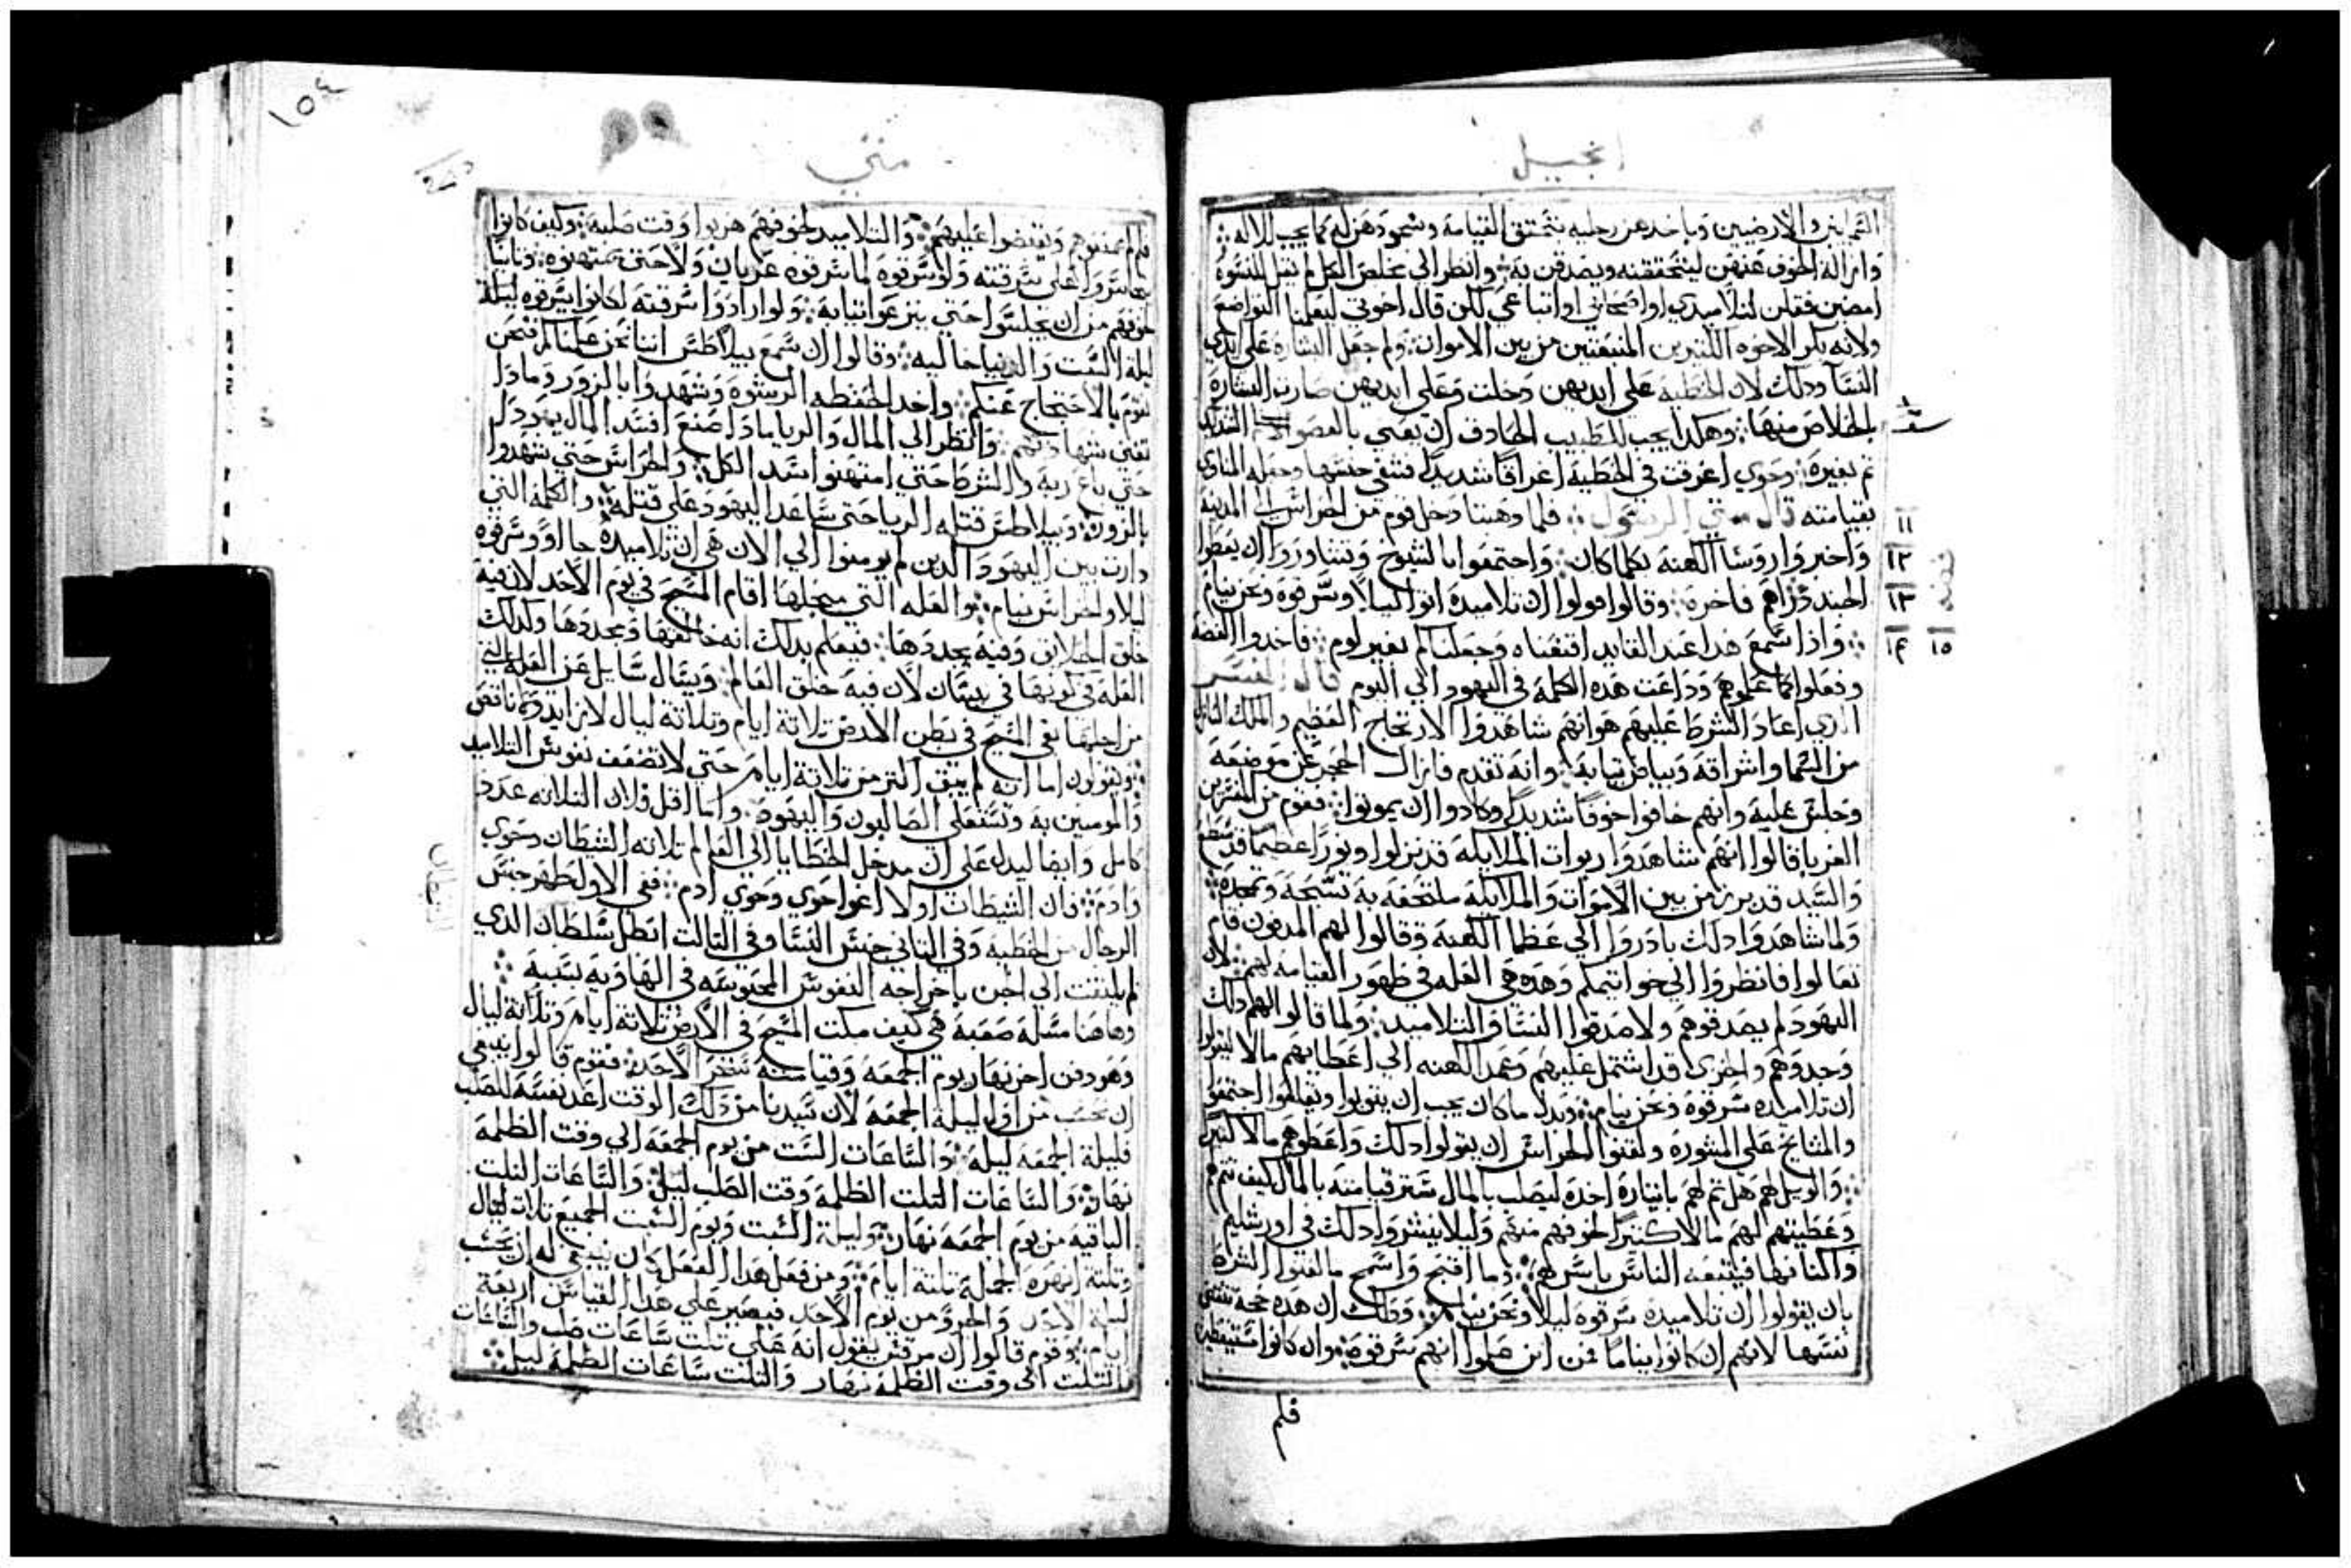 انجيل
السمايين والارضيين وباخدهن رجليه نتحقق القيامة وسجودهن له كما يجب للاله
وازالة الخوف عنهن ليتحققنه ويصدقن به وانظر الي مخلص الكل لم يقل للنسوه
امضين فقلن لتلاميدي او اصحابي او اتباعي لكن قال اخوتي ليعلمنا التواضع
ولانه بكر الاخوه الكتيرين المنبعتين من بين الاموات ولم جعل البشاره علي ايدي
النسا ودلك لان الخطية علي ايديهن دخلت وعلي ايديهن صارت البشارة
بالخلاص منها وهكدا يجب للطبيب الحادق ان يعني بالعضو الالم الشديد
تم بغيره وحوي اغرقت في الخطية اغراقا شديدا فشفي جنسها وجعله المنادي
بقيامته قال متي الرسول فلما دهبتا دخل قوم من الحراس الي المدينة
واخبروا روسا الكهنة بكلما كان واجتمعوا بالشيوخ وتشاوروا ان يعطوا
الجند دراهم فاخرة وقالوا قولوا ان تلاميدة اتوا ليلا وسرقوه ونحن نيام
واذا سمع هدا عند القايد اقنعناه وجعلناكم بغير لوم فاخدوا الفضة
وفعلوا كما علموهم وداعت هده الكلمة في اليهود الي اليوم قال المفسر
الدي اعاد الشرط عليهم هو انهم شاهدوا الارتجاج العظيم والملك النازل
من السما واشراقه وبياض تيابه وانه تقدم فازال الحجر عن موضعه
وجلس عليه وانهم خافوا خوفا شديدا وكادوا ان يموتوا فقوم من المفسرين
الغربا قالوا انهم شاهدوا ربوات الملايكه قد نزلوا ونورا عظيما قد سطع
والسيد قد برز من بين الاموات والملايكه ملتحفه به تسبحه وتمجده
ولما شاهدوا دلك بادروا الي عظما الكهنة وقالوا لهم المدفون قام
تعالوا فانظروا الي خواتيمكم وهده هي العله في ظهور القيامه لهم لان
اليهود لم يصدقوهم ولا صدقوا النسا والتلاميد ولما قالوا لهم دلك
وجدوهم والخزي قد اشتمل عليهم وعمد الكهنه الي اعطايهم مالا ليقولوا
ان تلاميده سرقوه ونحن نيام وبدل ما كان يجب ان يتوبوا ويقلعوا اجتمعوا
والمشايخ علي المشورة ولقنوا الحراس ان يقولوا دلك واعطوهم مالا كتيرا
والويل لهم هل تم لهم بايتاره اخده ليصلب بالمال ستر قيامته بالمال كيف تتم
وعطيتهم لهم مالا كتيرا لخوفهم منهم وليلا ينشروا دلك في اورشليم
واكنافها فيتبعه الناس باسرهم وما اقبح واسمج ما لقنوا الشرط
بان يقولوا ان تلاميده سرقوه ليلا ونحن نيام ودلك ان هده حجة تنتقض
نفسها لانهم ان كانوا نياما فمن اين علموا انهم سرقوه وان كانوا مستيقظين
فلم
١١
١٢
١٣
١٤ ١٥
١٥٤
متي
فلم لم يمنعوهم ويقبضوا عليهم والتلاميد لخوفهم هربوا وقت صلبه وكيف كانوا
يتجاسروا علي سرقته ولو سرقوه لما سرقوه عريان ولا حتي يمتهنوه وتانيا
خوفهم من ان يجلسوا حتي ينزعوا تيابه ولو ارادوا سرقته لكانوا يسرقوه ليلة
ليلة السبت والدنيا خاليه وقالوا ان سمع بيلاطس اننا نحن علمناكم فنحن
نقوم بالاحتجاج عنكم واخد الحفظه الرشوه وشهدوا بالزور وما دا
تغني شهادتهم وانظر الي المال والريا مادا صنع افسد المال يهودا
حتي باع ربه والشرط حتي امتهنوا سيد الكل والحراس حتي شهدوا
بالزور وبيلاطس قتله الريا حتي ساعد اليهود علي قتله والكلمة التي
دارت بين اليهود الدين لم يومنوا الي الان هي ان تلاميده جاوا وسرقوه
ليلا والحراس نيام والعله التي من اجلها اقام المسيح في يوم الاحد لان فيه
خلق الخلايق وفيه يجددها فيعلم بدلك انه خالقها ومجددها وكدلك
العله في كونها في نيسان لان فيه خلق العالم ويسال سايل عن العله التي
من اجلها بقي المسيح في بطن الارض تلاتة ايام وتلاتة ليال لا زايد ولا ناقص
ويقولون اما انه لم يبق اكتر من تلاتة ايام حتي لا تضعف نفوس التلاميد
والمومنين به وتستعلي الصالبون واليهود واما اقل فلان التلاته عدد
كامل وايضا ليدل علي ان مدخل الخطايا الي العالم تلاته الشيطان وحوي
وادم فان الشيطان اولا اغوا حوي وحوي ادم ففي الاول طهر جنس
الرجال من الخطية وفي التاني جنس النسا وفي التالت ابطل سلطان الدي
لم يلتفت الي احد باخراجه النفوس المحبوسه في الهاوية بسببه
وهاهنا مسلة صعبة هي كيف مكت المسيح في الارض تلاتة ايام وتلاتة ليال
وهو دفن اخر نهار يوم الجمعة وقيامته سحر الاحد فقوم قالوا ينبغي
ان يحسب من اول ليلة الجمعة لان سيدنا من دلك الوقت اعد نفسه للصلب
فليلة الجمعة ليلة والساعات الست من يوم الجمعة الي وقت الظلمة
نهار والساعات التلت الظلمة وقت الصلب ليل والساعات التلت
الباقية من يوم الجمعة نهار وليلة السبت ويوم السبت الجميع تلات ليال
وتلتة انهرة الجملة تلتة ايام ومن فعل هدا الفعل كان ينبغي له ان يحسب
ليلة الاحد والجزو من يوم الاحد فيصير علي هدا القياس اربعة
ايام وقوم قالوا ان مرقس يقول انه علي تلت ساعات صلب والساعات
التلت الي وقت الظلمة نهار والتلت ساعات الظلمة ليل